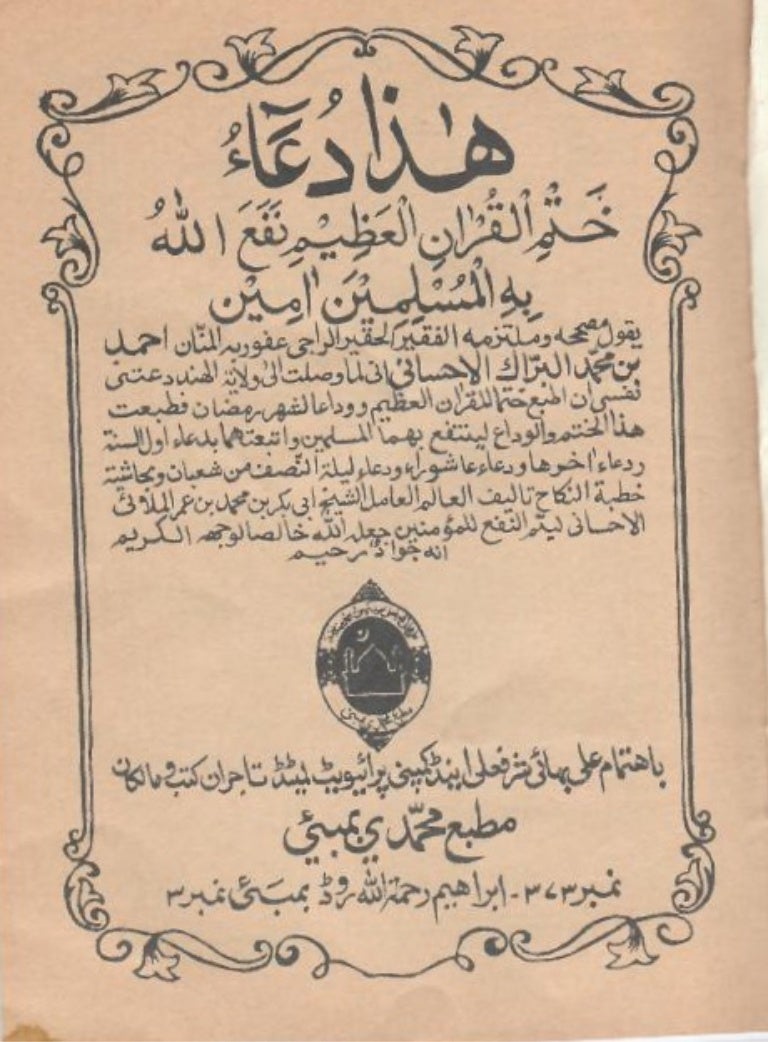 هٰذا دُعَآءُ
خَتْمِ الْقُرْاٰنِ الْعَظِيْمِ نَفَعَ اللهُ
بِهِ الْمُسْلِمِيْنَ اٰمِيْن
يقول مصححه وملتزمه الفقير الحقير الراجى عفو ربه المنّان احمد
بن محمّد البرّاك الاحسائى انى لما وصلت الى ولاية الهند دعتنى
نفسى ان اطبع ختما للقران العظيم ووداعا لشهر رمضان فطبعت
هذا الختم والوداع لينتفع بهما المسلمين واتبعتهما بدعاء اول السنة
ودعاء اخرها ودعاء عاشوراء ودعاء ليلة النّصف من شعبان وبحاشيته
خطبة النكاح تاليف العالم العامل الشيخ ابى بكر بن محمد بن عمر الملائى
الاحسائى ليتم النفع للمؤمنين جعله الله خالصا لوجهه الكريم
انه جوادٌ رحيم
باهتمام على بھائى شرفعلى اينڈ كمپنى پرائيويٹ لميٹڈ تاجران كتب و مالكان
مطبع محمّدي بمبئي
نمبر ٣٧٣ - ابراهيم رحمة الله روڈ بمبئى نمبر ٣